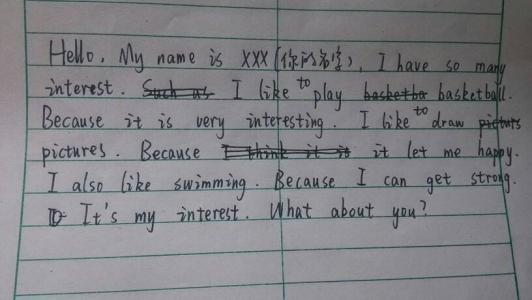 Hello. My name is XXX (你的名字), I have so many
interest. Such as I like to play basketba basketball.
Because it is very interesting. I like to draw picturs
pictures. Because I think it is it let me happy.
I also like swimming. Because I can get strong.
It's my interest. What about you?